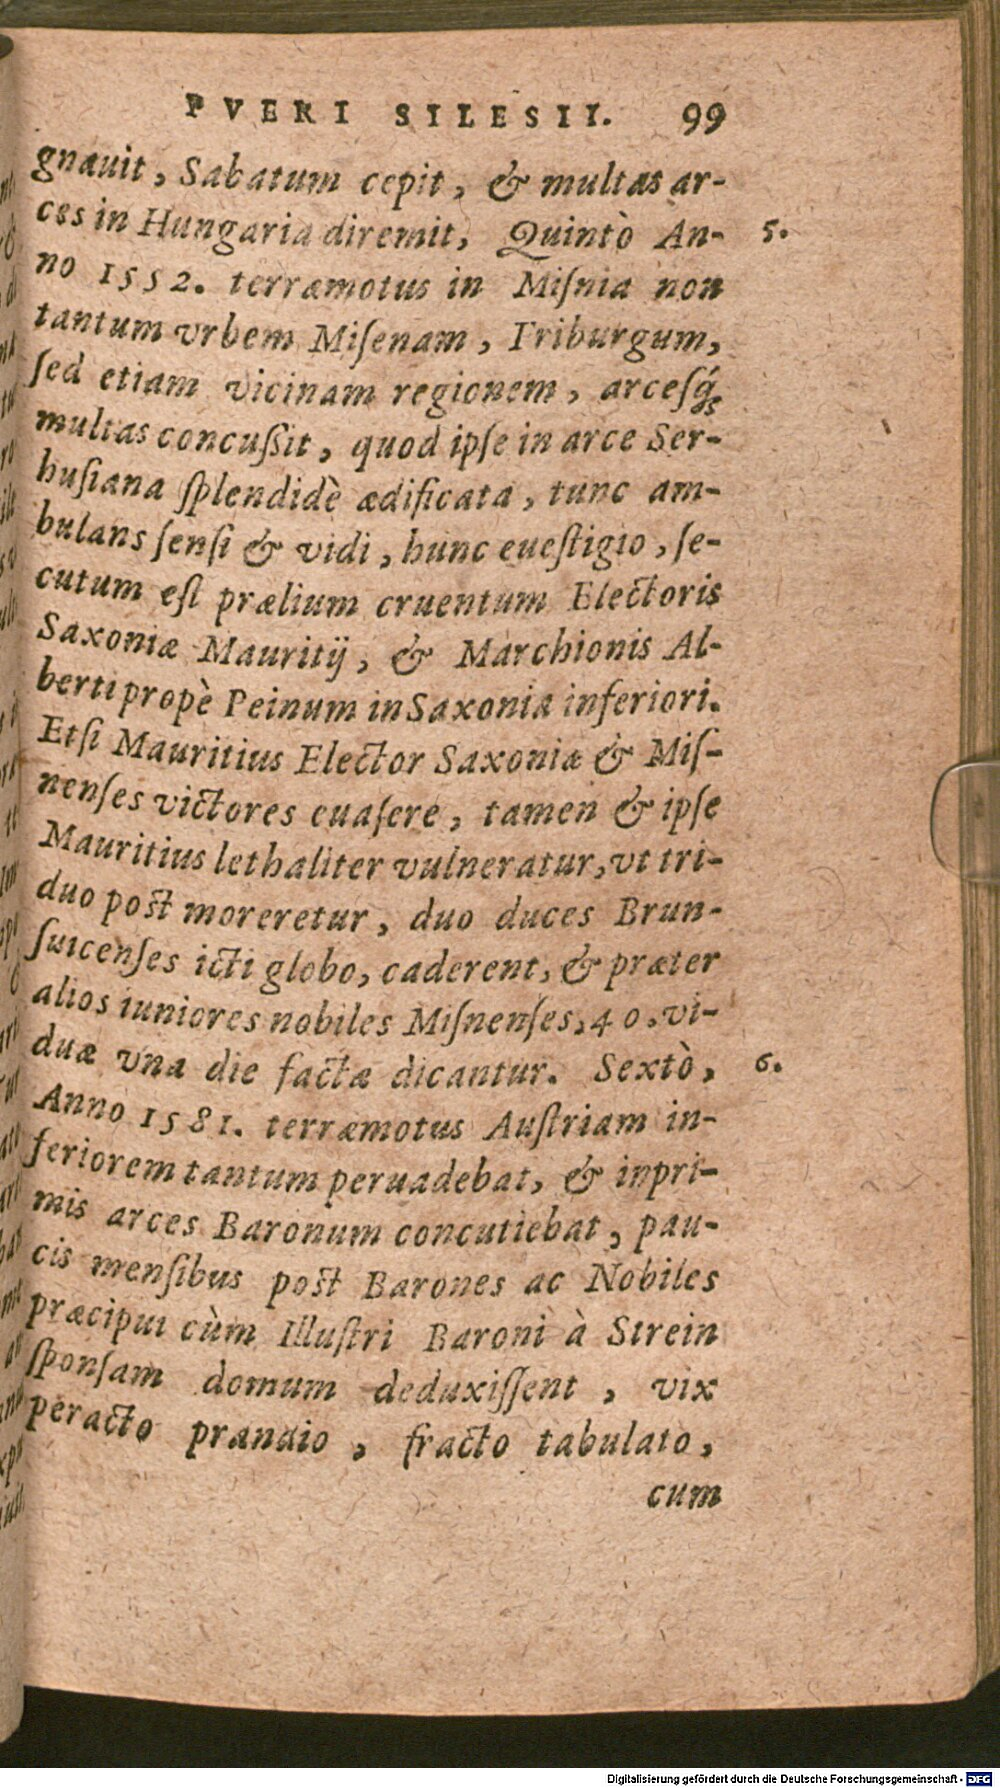 PVERI SILESII. 99
gnauit, Sabatum cepit, & multas ar-
ces in Hungaria diremit, Quintò An- 5.
no 1552. terræmotus in Miſnia non
tantum vrbem Miſenam, Friburgum,
ſed etiam vicinam regionem, arceſq́ꝫ
multas concuſſit, quod ipſe in arce Ser-
huſiana ſplendidè ædificata, tunc am-
bulans ſenſi & vidi, hunc eueſtigio, ſe-
cutum eſt prælium cruentum Electoris
Saxoniæ Mauritij, & Marchionis Al-
berti propè Peinum in Saxonia inferiori.
Etſi Mauritius Elector Saxoniæ & Miſ-
nenſes victores euaſere, tamen & ipſe
Mauritius lethaliter vulneratur, vt tri-
duo poſt moreretur, duo duces Brun-
ſuicenſes icti globo, caderent, & præter
alios iuniores nobiles Miſnenſes, 40. vi-
duæ vna die factæ dicantur. Sextò, 6.
Anno 1581. terræmotus Auſtriam in-
feriorem tantum peruadebat, & inpri-
mis arces Baronum concutiebat, pau-
cis menſibus poſt Barones ac Nobiles
præcipui cùm Illuſtri Baroni à Strein
ſponſam domum deduxiſſent, vix
peracto prandio, fracto tabulato,
cum
Digitalisierung gefördert durch die Deutsche Forschungsgemeinschaft - DFG